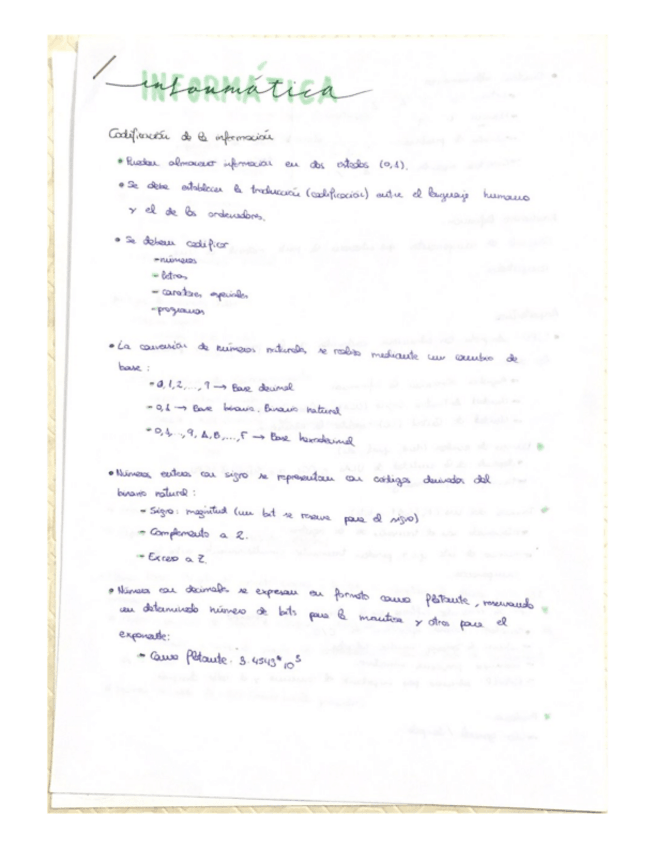 INFORMÁTICA
informática
Codificación de la información
• Pueden almacenar información en dos estados (0,1).
• Se debe establecer la traducción (codificación) entre el lenguaje humano
y el de los ordenadores.
• Se deben codificar
- números
- letras
- caracteres especiales
- programas
• La conversión de números naturales se realiza mediante un cambio de
base:
- 0,1,2,...,9 → Base decimal
- 0,1 → Base binaria. Binario natural
- 0,1,..,9,A,B,...,F → Base hexadecimal
• Números enteros con signo se representan con códigos derivados del
binario natural:
- Signo: magnitud (un bit se reserva para el signo)
- Complemento a 2.
- Exceso a Z.
• Números con decimales se expresan en formato coma flotante, reservando
un determinado número de bits para la mantisa y otros para el
exponente:
- Coma flotante. 3.4543*10⁵